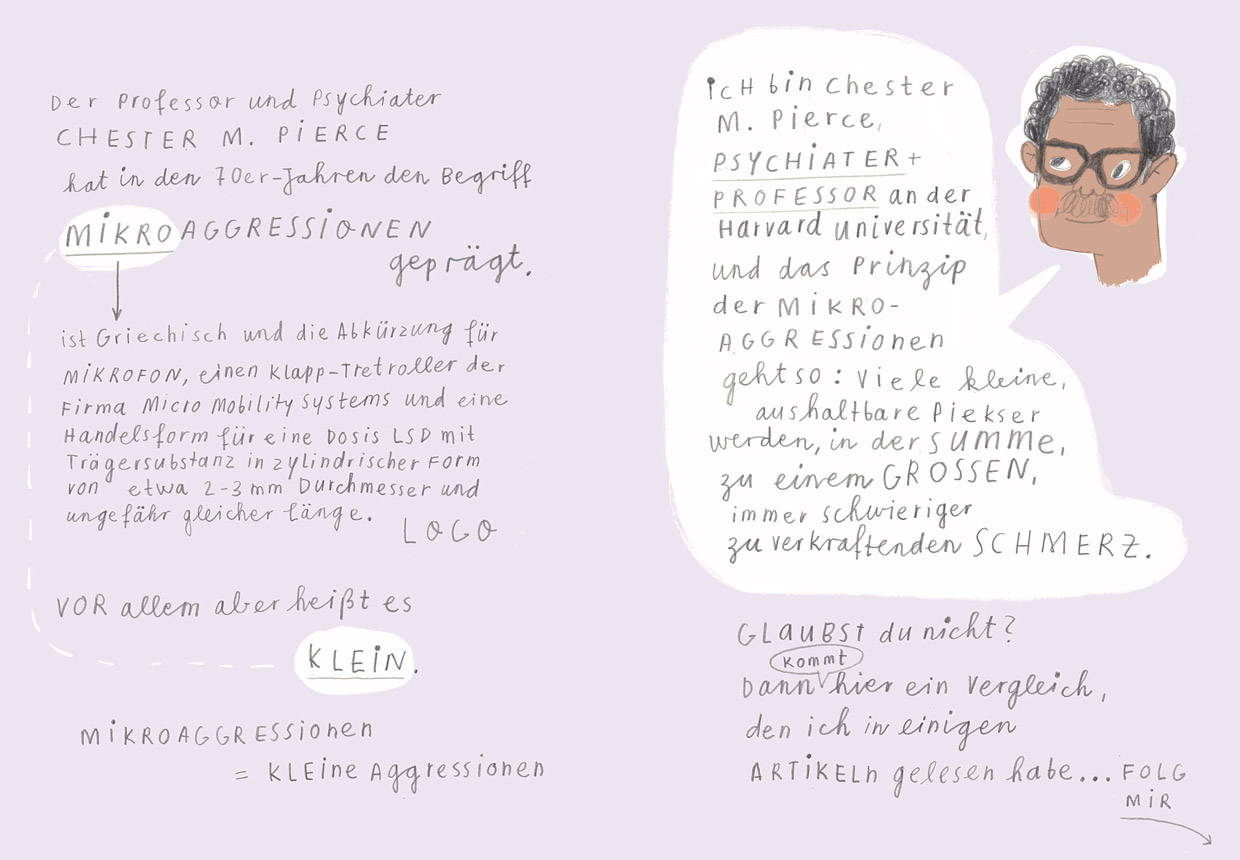 Der Professor und Psychiater
CHESTER M. PIERCE
hat in den 70er-Jahren den Begriff
MIKROAGGRESSIONEN
geprägt.
ist Griechisch und die Abkürzung für
MIKROFON, einen Klapp-Tretroller der
Firma Micro Mobility Systems und eine
Handelsform für eine Dosis LSD mit
Trägersubstanz in zylindrischer Form
von etwa 2-3 mm Durchmesser und
ungefähr gleicher Länge.
LOGO
VOR allem aber heißt es
KLEIN.
MIKROAGGRESSIONEN
= KLEINE Aggressionen
ICH bin Chester
M. Pierce,
PSYCHIATER +
PROFESSOR an der
Harvard Universität,
und das Prinzip
der MIKRO-
AGGRESSIONEN
geht so: Viele kleine,
aushaltbare Piekser
werden, in der SUMME,
zu einem GROSSEN,
immer schwieriger
zu verkraftenden SCHMERZ.
GLAUBST du nicht?
kommt
Dann hier ein Vergleich,
den ich in einigen
ARTIKELN gelesen habe... FOLG
MIR